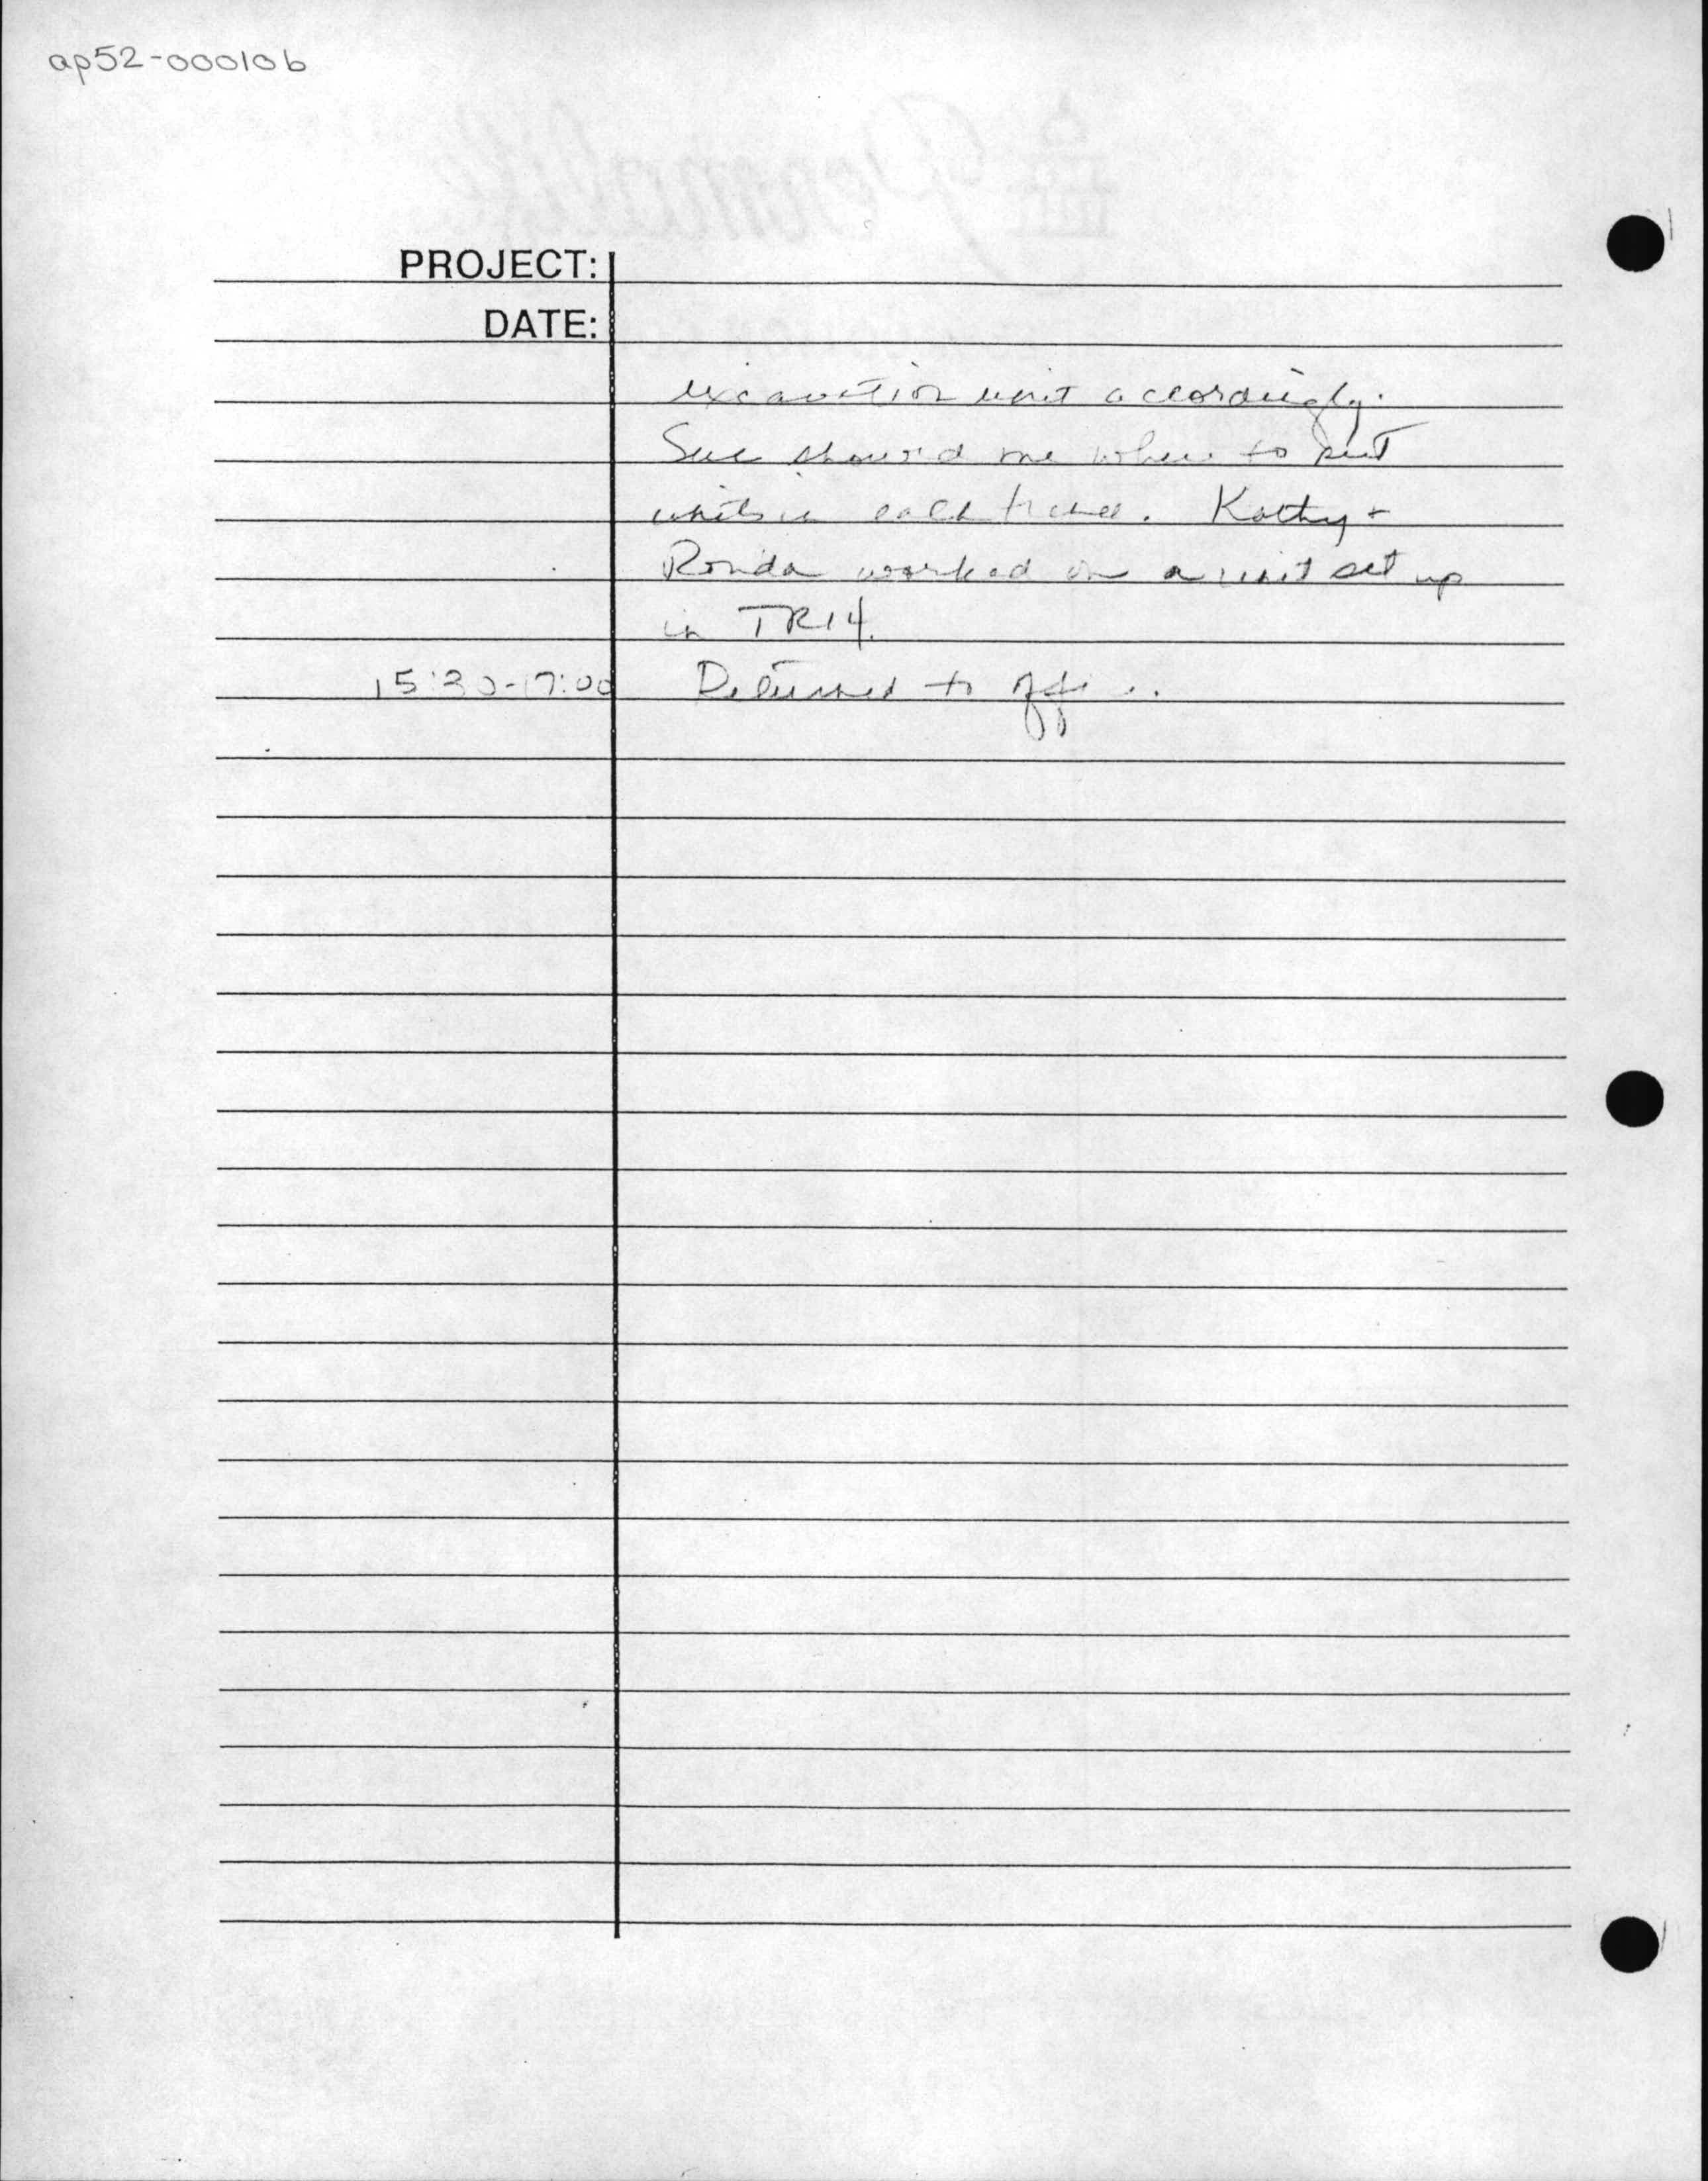 ap52-000106
PROJECT:
DATE:
excavation unit accordingly.
Sue showed me where to put
units in each trench. Kathy +
Ronda worked on a unit set up
in TR14.
15:30-17:00 Returned to office.